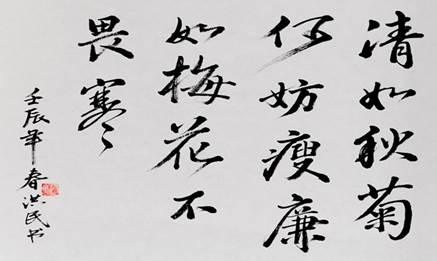 清如秋菊
何妨瘦廉
如梅花不
畏寒
壬辰年春洪民书